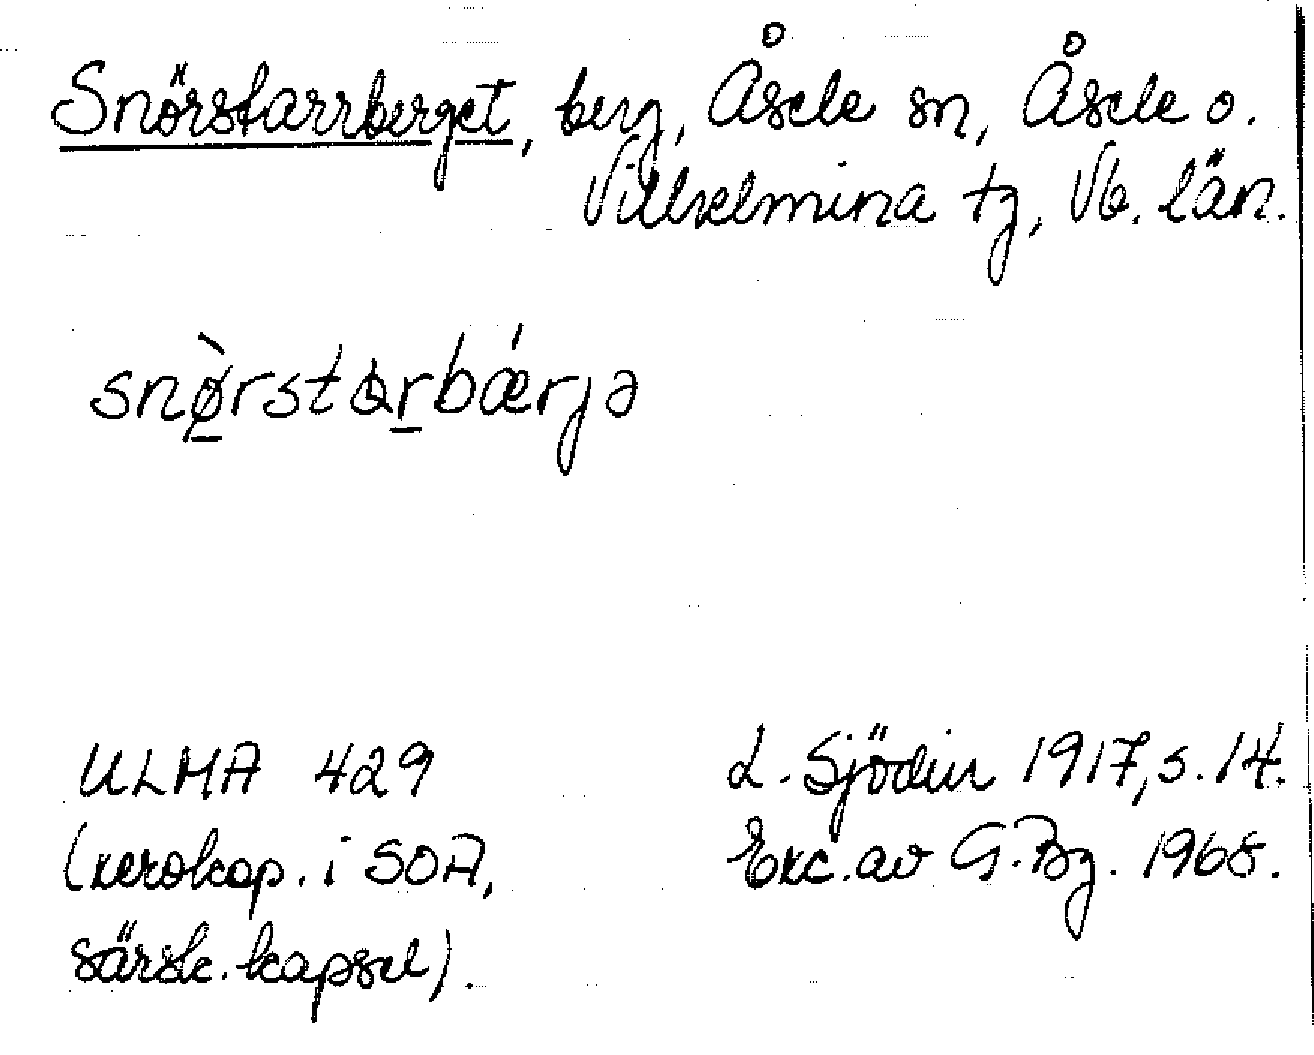 Snörstarrberget, berg, Åsele sn, Åsele o.
Vilhelmina tg, Vb. län.
snø̱̀rstɑr̲bǽrjə
ULMA 429
(xerokop. i SOA,
särsk. kapsel).
L. Sjödin 1917, s. 14.
Exc. av G. Bg. 1968.